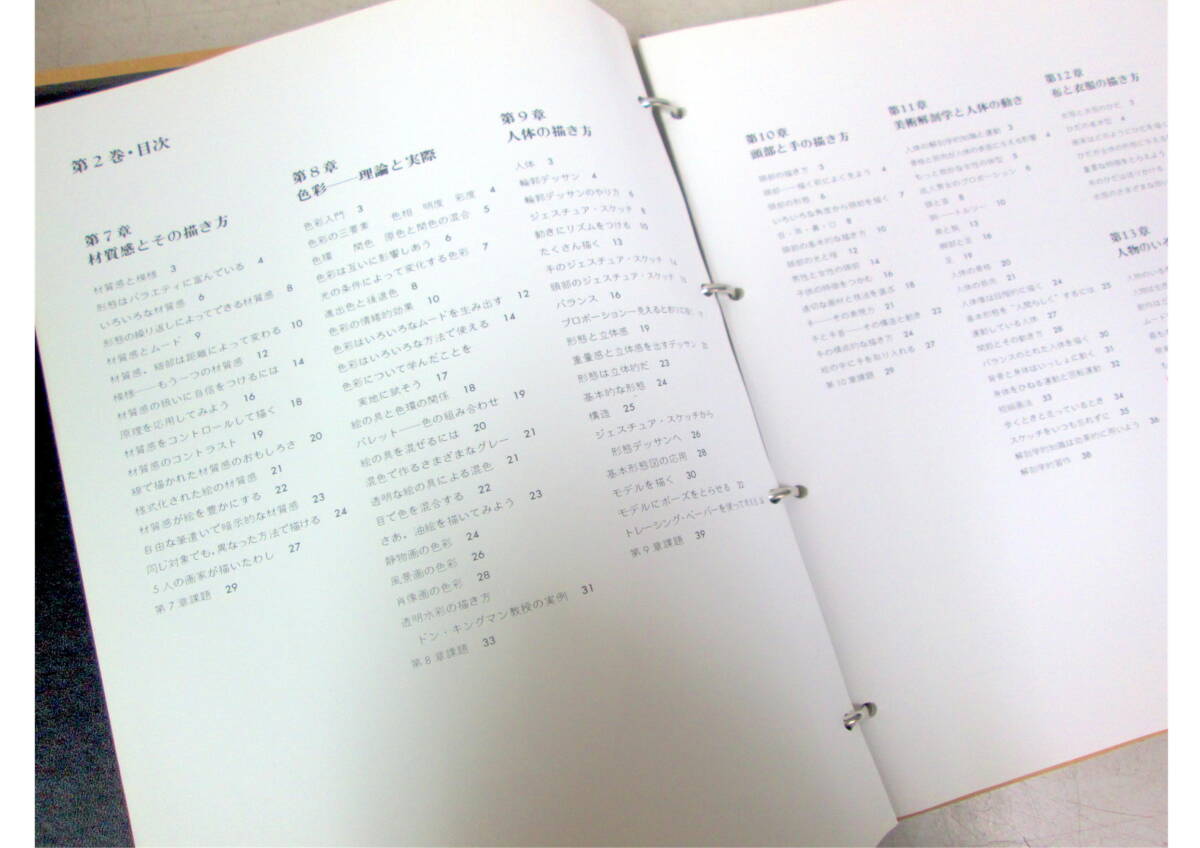 第2巻・目次
第7章
材質感とその描き方
材質感と模様 3
形態はバラエティに富んでいる 4
いろいろな材質感 6
形態の繰り返しによってできる材質感 8
材質感とムード 9
材質感・細部は距離によって変わる 10
模様──もう一つの材質感 12
材質感の扱いに自信をつけるには 14
原理を応用してみよう 16
材質感をコントロールして描く 18
材質感のコントラスト 19
線で描かれた材質感のおもしろさ 20
様式化された絵の材質感 21
材質感が絵を豊かにする 22
自由な筆遣いで暗示的な材質感 23
同じ対象でも,異なった方法で描ける 24
5人の画家が描いたわし 27
第7章課題 29
第8章
色彩──理論と実際
色彩入門 3
色彩の三要素 色相 明度 彩度 4
色環 間色 原色と間色の混合 5
色彩は互いに影響しあう 6
光の条件によって変化する色彩 7
進出色と後退色 8
色彩の情緒的効果 10
色彩はいろいろなムードを生み出す 12
色彩はいろいろな方法で使える 14
色彩について学んだことを
実地に試そう 17
絵の具と色環の関係 18
パレット──色の組み合わせ 19
絵の具を混ぜるには 20
混色で作るさまざまなグレー 21
透明な絵の具による混色 21
目で色を混合する 22
さあ,油絵を描いてみよう 23
静物画の色彩 24
風景画の色彩 26
肖像画の色彩 28
透明水彩の描き方
ドン・キングマン教授の実例 31
第8章課題 33
第9章
人体の描き方
人体 3
輪郭デッサン 4
輪郭デッサンのやり方 6
ジェスチュア・スケッチ 8
動きにリズムをつける 10
たくさん描く 13
手のジェスチュア・スケッチ 14
頭部のジェスチュア・スケッチ
バランス 16
プロポーション―見えるとおりに
形態と立体感 19
重量感と立体感を出すデッサン
形態は立体的だ 23
基本的な形態 24
構造 25
ジェスチュア・スケッチから
形態デッサンへ 26
基本形態図の応用 28
モデルを描く 30
モデルにポーズをとらせる 32
トレーシング・ペーパーを使って
第9章課題 39
第10章
頭部と手の描き方
頭部の描き方 3
頭部──描く前によく見よう 4
頭部の形態 6
いろいろな角度から頭部を描く 7
目・耳・鼻・口 8
頭部の基本的な描き方 10
頭部の光と陰 12
男性と女性の頭部 14
子供の特徴をつかむ 16
適切な画材と技法を選ぶ 18
手──その表現力 21
手と手首──その構造と動き 22
手の構成的な描き方 24
絵の中に手を取り入れる 27
第10章課題 29
第11章
美術解剖学と人体の動き
人体の解剖学的知識と運動 3
骨格と筋肉が人体の表面に与える影響 4
もっと微妙な女性の体型 5
成人男女のプロポーション 6
頭と首 8
胴──トルソー 10
肩と腕 13
脚部と足 16
足 19
人体の骨格 20
人体の筋肉 21
人体像は段階的に描く 24
基本的形態を“人間らしく”するには 25
運動している人体 27
関節とその動き方 28
バランスのとれた人体を描く 30
背骨と身体はいっしょに動く 31
身体をひねる運動と回転運動 32
短縮画法 33
歩くときと立っているとき 34
スケッチをいつも忘れずに 35
解剖学的知識は効果的に用いよう 36
解剖学的習作 38
第12章
布と衣服の描き方
衣服と衣服のひだ 3
ひだの基本型 4
第13章
人物のいろ